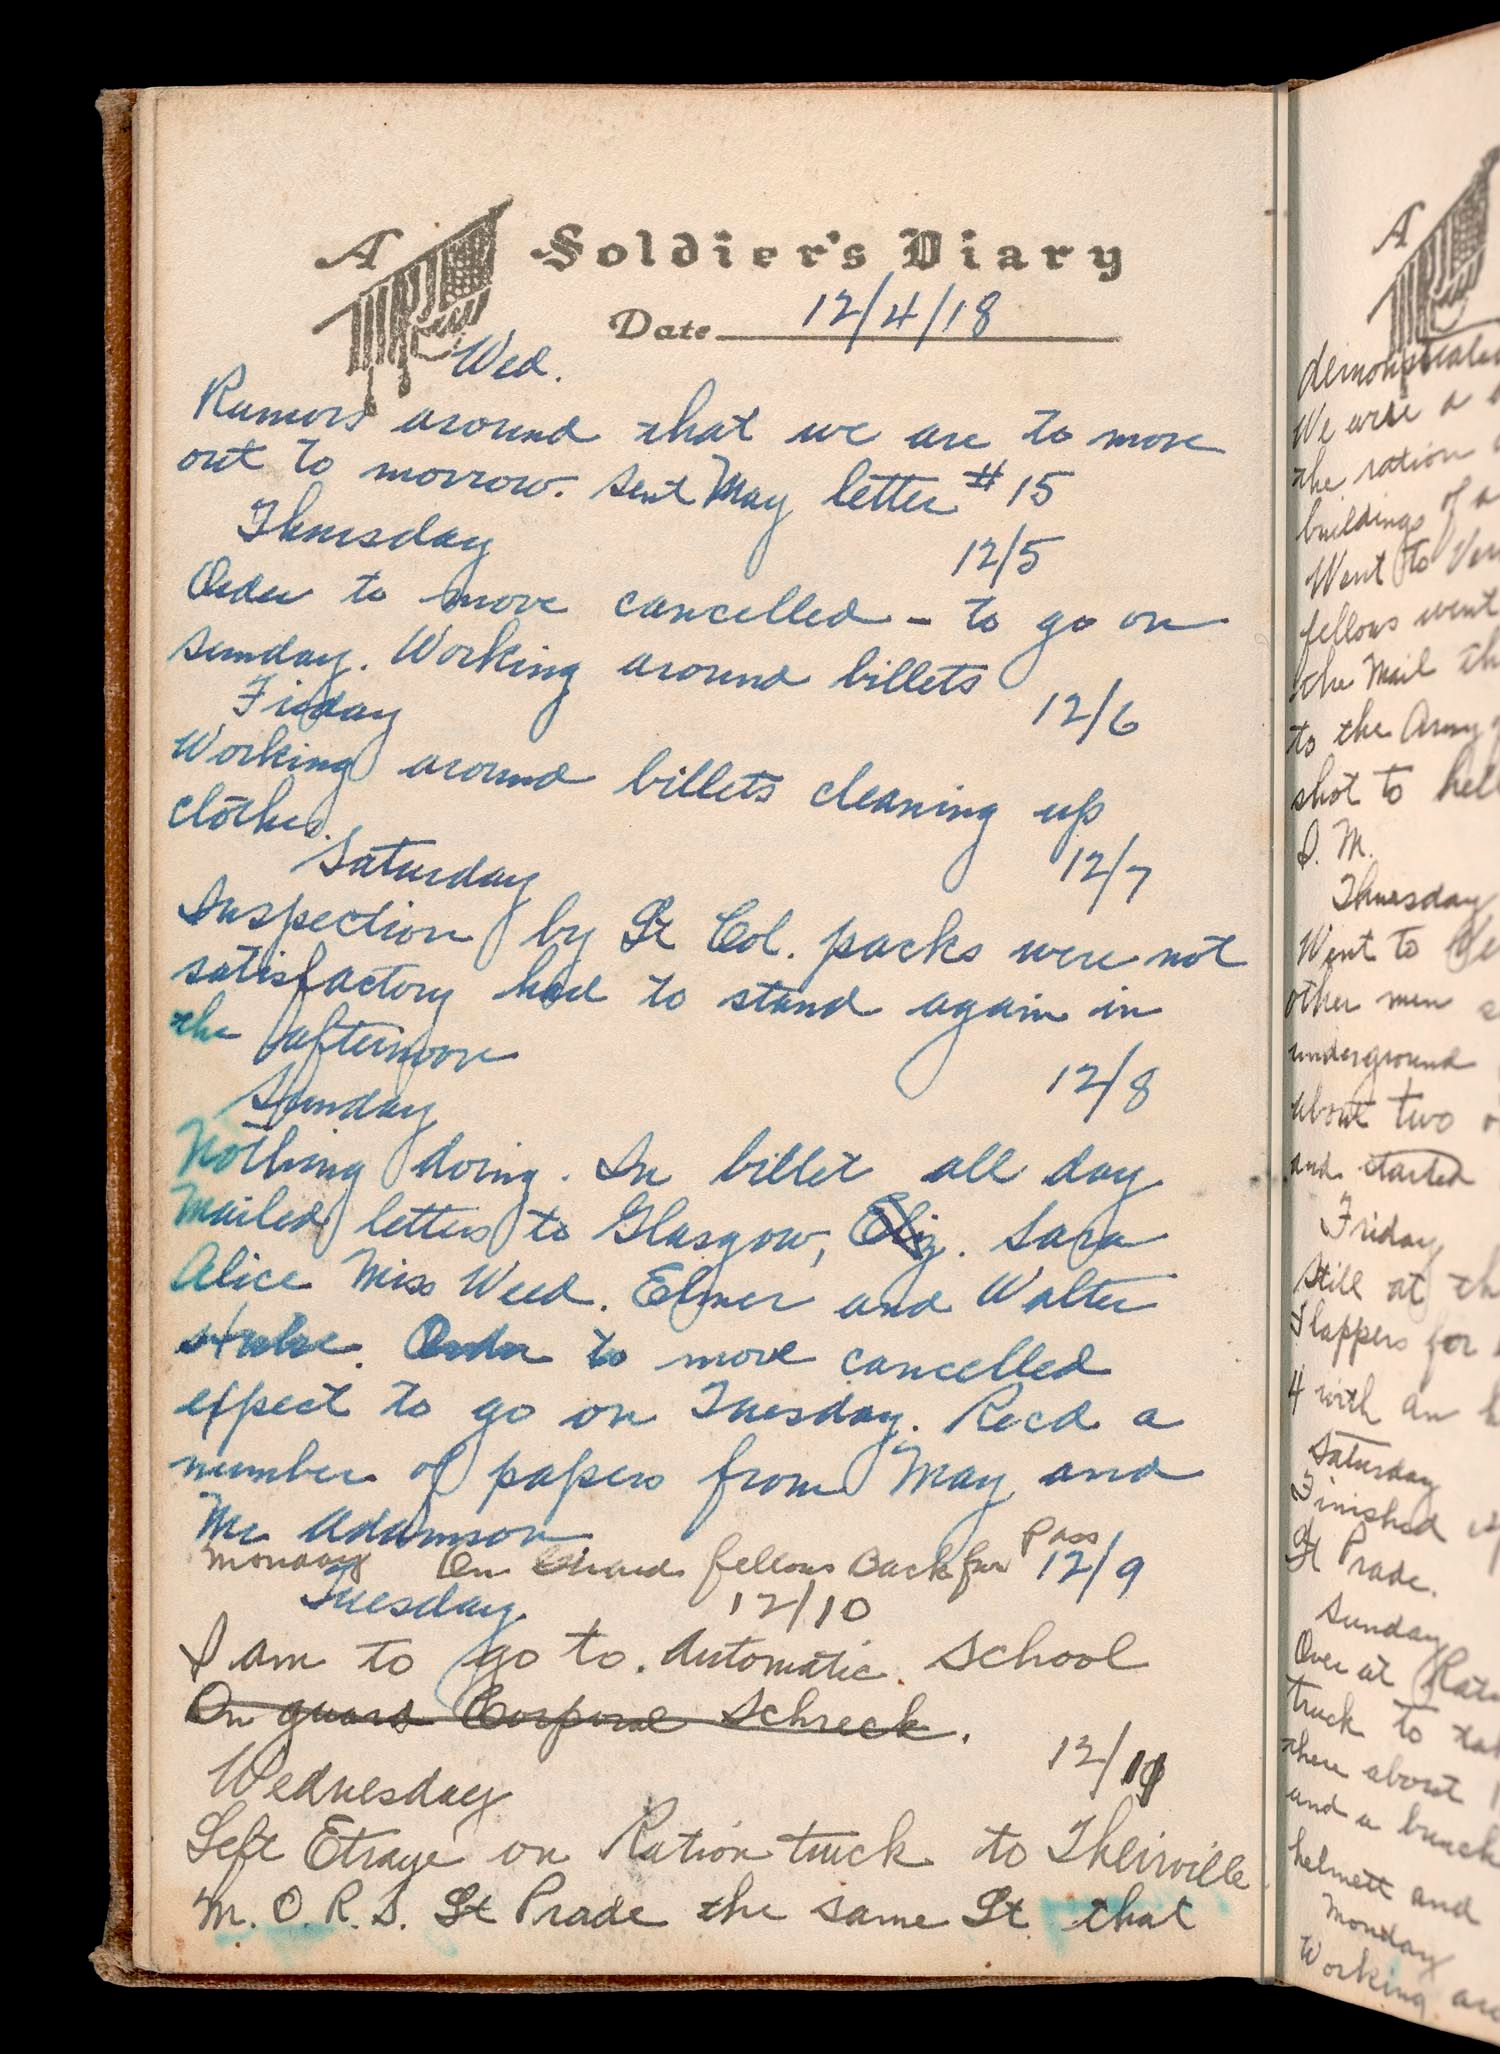 A Soldier's Diary
Date 12/4/18
Wed.
Rumors around that we are to move
out to morrow. Sent May letter #15
Thursday 12/5
Order to move cancelled - to go on
Sunday. Working around billets
Friday 12/6
Working around billets cleaning up
clothes
Saturday 12/7
Inspection by Lt Col. packs were not
satisfactory had to stand again in
the afternoon
Sunday 12/8
Nothing doing. In billet all day
Mailed letters to Glasgow, Eliz. Sara
Alice Miss Weed. Elmer and Walter
Order to move cancelled
expect to go on Tuesday. Recd a
number of papers from May and
Mr Adamson
Monday On Guard fellows back for Pass 12/9
Tuesday 12/10
I am to go to. Automatic. School
On guard Corporal Schreck.
Wednesday 12/11
Left Etraye on Ration truck to Theirville
M. O. R. S. Lt Prade the same Lt that
A
We were a
the ration
buildings of a
Went to
fellows went
the Mail
to the Army
shot to hell
Thursday
Went to
other men
underground
about two
and started
Friday
Still at
Flappers for
4 with an
Saturday
Finished
Lt Prade.
Sunday
Over at
truck to
there about
and a bunch
helmett and
Monday
Working